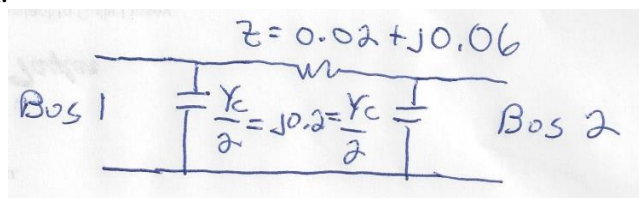 Z = 0.02 + j0.06
Bus 1
Yc/2 = j0.2 = Yc/2
Bus 2